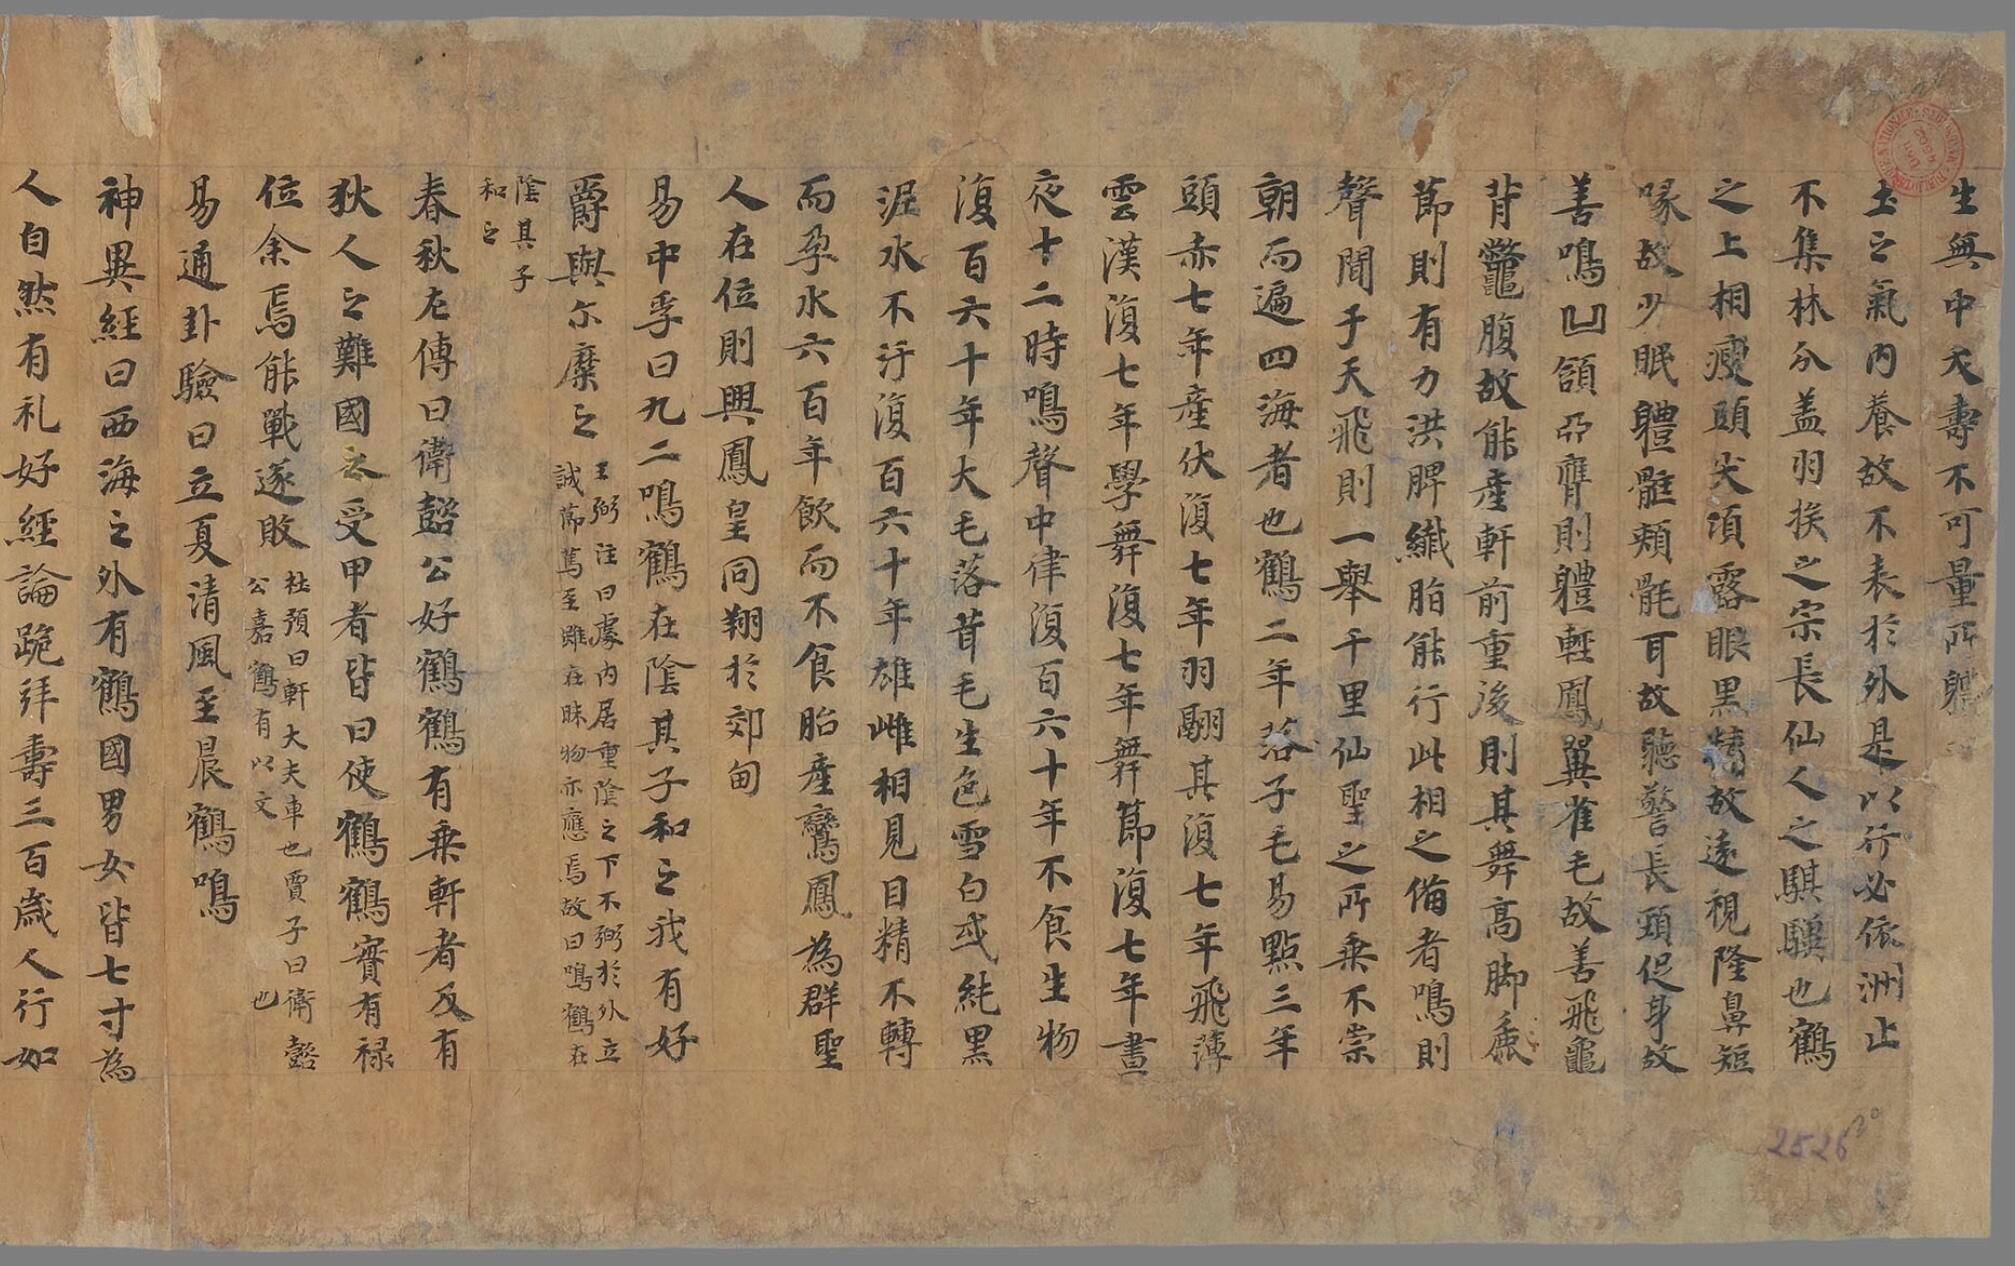 生無中夭壽不可量所體
土之氣內養故不表於外是以行必依洲止
不集林木盖羽族之宗長仙人之騏驥也鶴
之上相瘦頭尖頂露眼黑精故遠視隆鼻短
喙故少眠𩪧頰𣬜耳故聽警長頸促身故
善鳴凹頷亞膺則體輕鳳翼雀毛故善飛龜
背鼈腹故能產軒前重後則其舞高脚麁
節則有力洪脾纖胎能行此相之備者鳴則
聲聞于天飛則一舉千里仙聖之所乘不崇
朝而遍四海者也鶴二年落子毛易點三年
頭赤七年產伏復七年羽翮其復七年飛薄
雲漢復七年學舞復七年舞節復七年晝
夜十二時鳴聲中律復百六十年不食生物
復百六十年大毛落茸毛生色雪白或純黑
泥水不汙復百六十年雄雌相見目精不轉
而孕水六百年飲而不食胎產鸞鳳為群聖
人在位則興鳳皇同翔於郊甸
易中孚曰九二鳴鶴在陰其子和之我有好
爵與尒糜之
王弼注曰處內居重陰之下不弼於外立
誠節篤至雖在昧物亦應焉故曰鳴鶴在
陰其子
和之
春秋左傳曰衛懿公好鶴鶴有乘軒者及有
狄人之難國人受甲者皆曰使鶴鶴實有祿
位余焉能戰遂敗
杜預曰軒大夫車也賈子曰衛懿
公嘉鶴有以文也
易通卦驗曰立夏清風至晨鶴鳴
神異經曰西海之外有鶴國男女皆七寸為
人自然有礼好經論跪拜壽三百歲人行如
2526